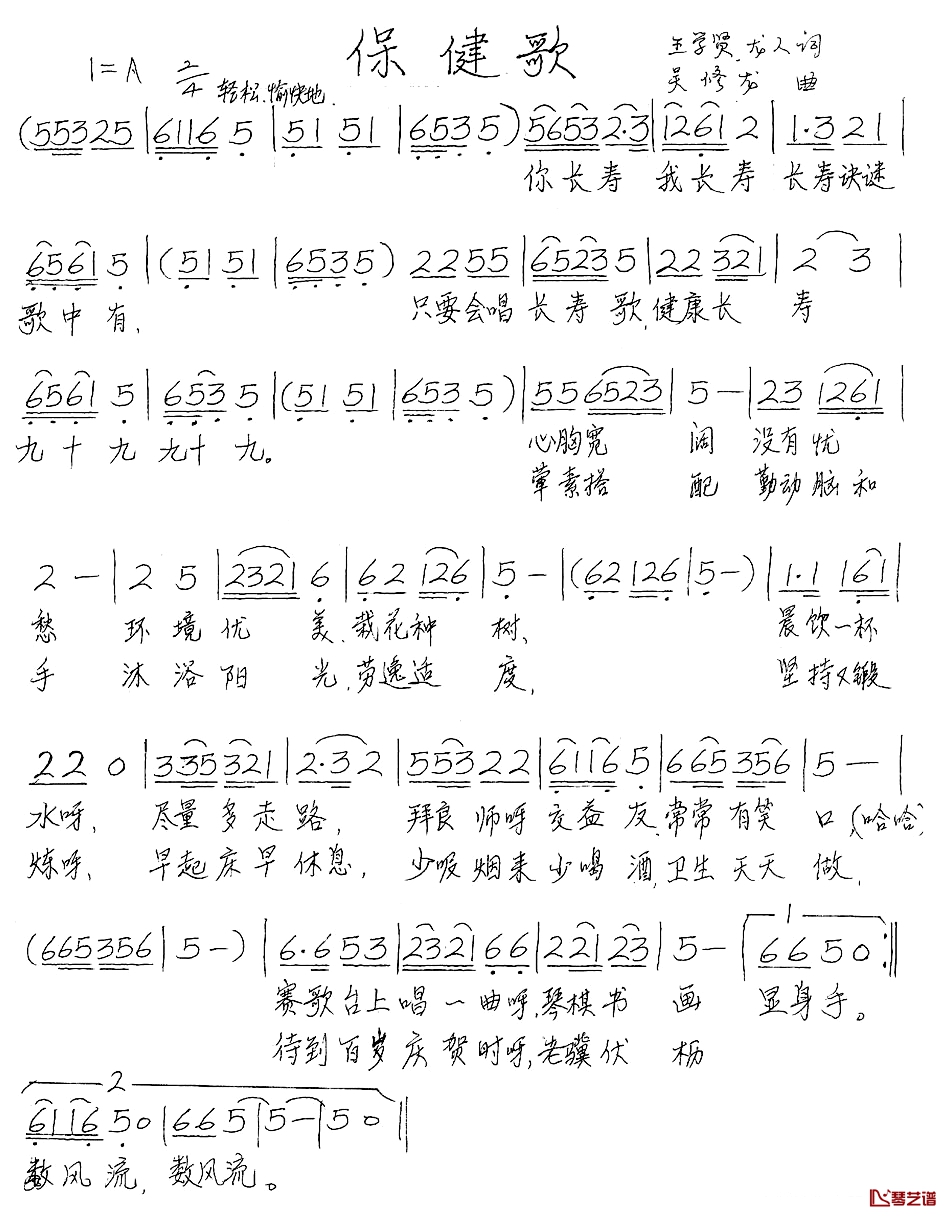 保健歌
王学贤、龙人词
吴修龙 曲
1=A 2/4 轻松、愉快地
(553225 | 6116 5 | 51 51 | 653 5) 56532·3 | 1261 2 | 1·3 21 |
你长寿 我长寿 长寿诀谜
6561 5 | (51 51 | 6535) 2255 | 65235 | 22 321 | 2 3 |
歌中有, 只要会唱长寿歌,健康长 寿
6561 5 | 653 5 | (51 51 | 653 5) | 55 6523 | 5 - | 23 1261 |
九十九 九十九。 心胸宽 阔 没有忧
荤素搭 配 勤动脑和
2 - | 2 5 | 2321 6 | 62 126 | 5 - | (62 126 | 5 -) | 1·1 161 |
愁 环境优 美,栽花种 树、 晨饮一杯
手 沐浴阳 光,劳逸适 度, 坚持又锻
22 0 | 335 321 | 2·32 | 553 22 | 6116 5 | 665 356 | 5 — |
水呀、 尽量多走路, 拜良师呀交益友,常常有笑口(哈哈)
炼呀、 早起床早休息, 少吸烟来少喝酒,卫生天天做,
(665356 | 5 -) | 6·6 53 | 2321 66 | 221 23 | 5 - | 1 66 50 :||
赛歌台上唱一曲呀,琴棋书 画 显身手。
待到百岁庆贺时呀,老骥伏 枥
2
6116 50 | 66 5 | 5 - | 5 0 ||
数风流, 数风流。
琴艺谱